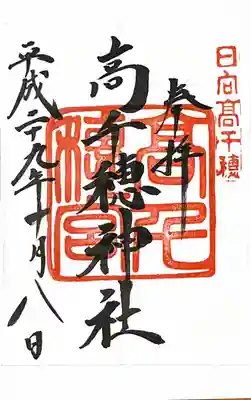 日向高千穂
奉拝
高千穂神社
平成二十九年十月八日